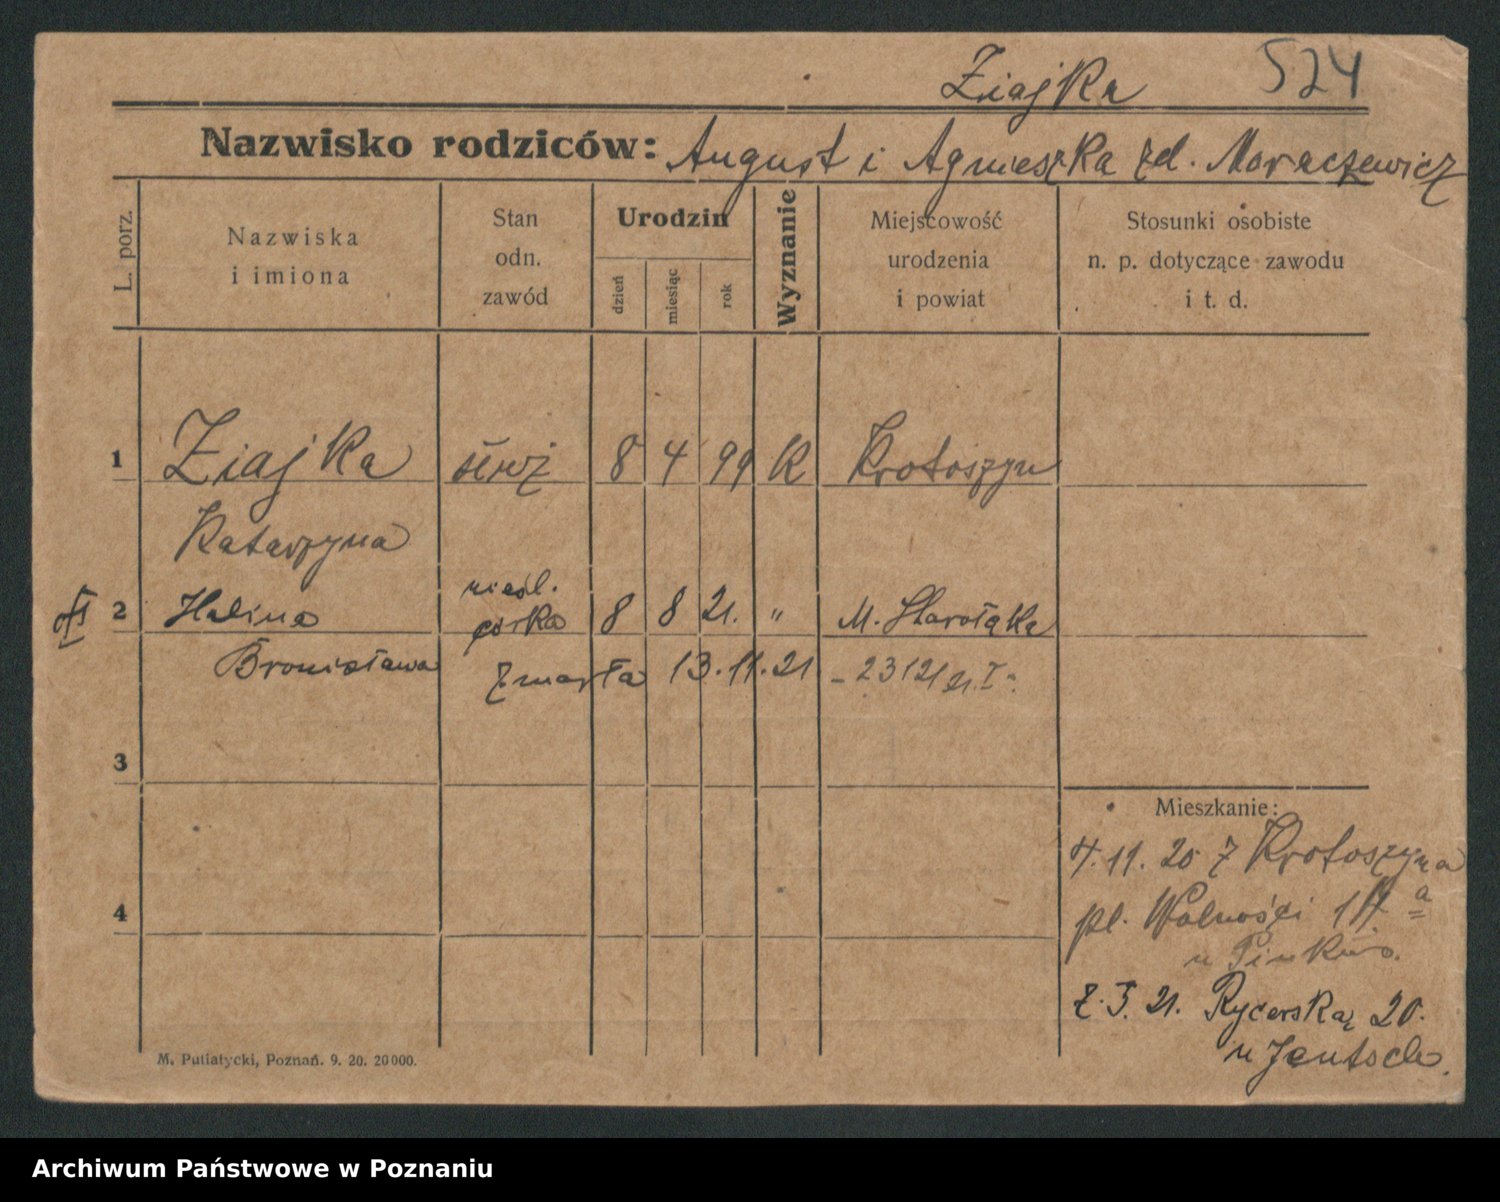 Ziajka 524
Nazwisko rodziców: August i Agnieszka zd. Moraczewicz
L. porz.
Nazwiska
i imiona
Stan
odn.
zawód
Urodzin
dzień
miesiąc
rok
Wyznanie
Miejscowość
urodzenia
i powiat
Stosunki osobiste
n. p. dotyczące zawodu
i t. d.
1 Ziajka służ 8 4 99 K Krotoszyn
Katarzyna
nieśl.
2 Halina córka 8 8 21. " M. Starołęka
Bronisława zmarła 13.11.21
3
4
Mieszkanie:
4.11.20 z Krotoszyna
pl. Wolności
u
21. Rycerska 20.
u Jentsch.
M. Putiatycki, Poznań. 9. 20. 20000.
Archiwum Państwowe w Poznaniu